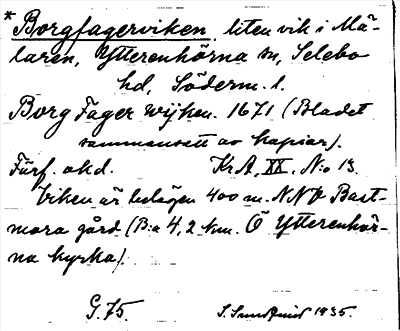 * Borgfagerviken, liten vik i Mä-
laren, Ytterenhörna sn, Selebo
hd, Söderm. l.
Borg Fager wijken. 1671 (Bladet
sammansatt av kopior).
Förf. okd. KrA, XX. N:o 13.
Viken är belägen 400 m. NNV Bast-
mora gård (B:a 4,2 km. Ö Ytterenhör-
na kyrka).
G. 75. S. Sundqvist 1935.